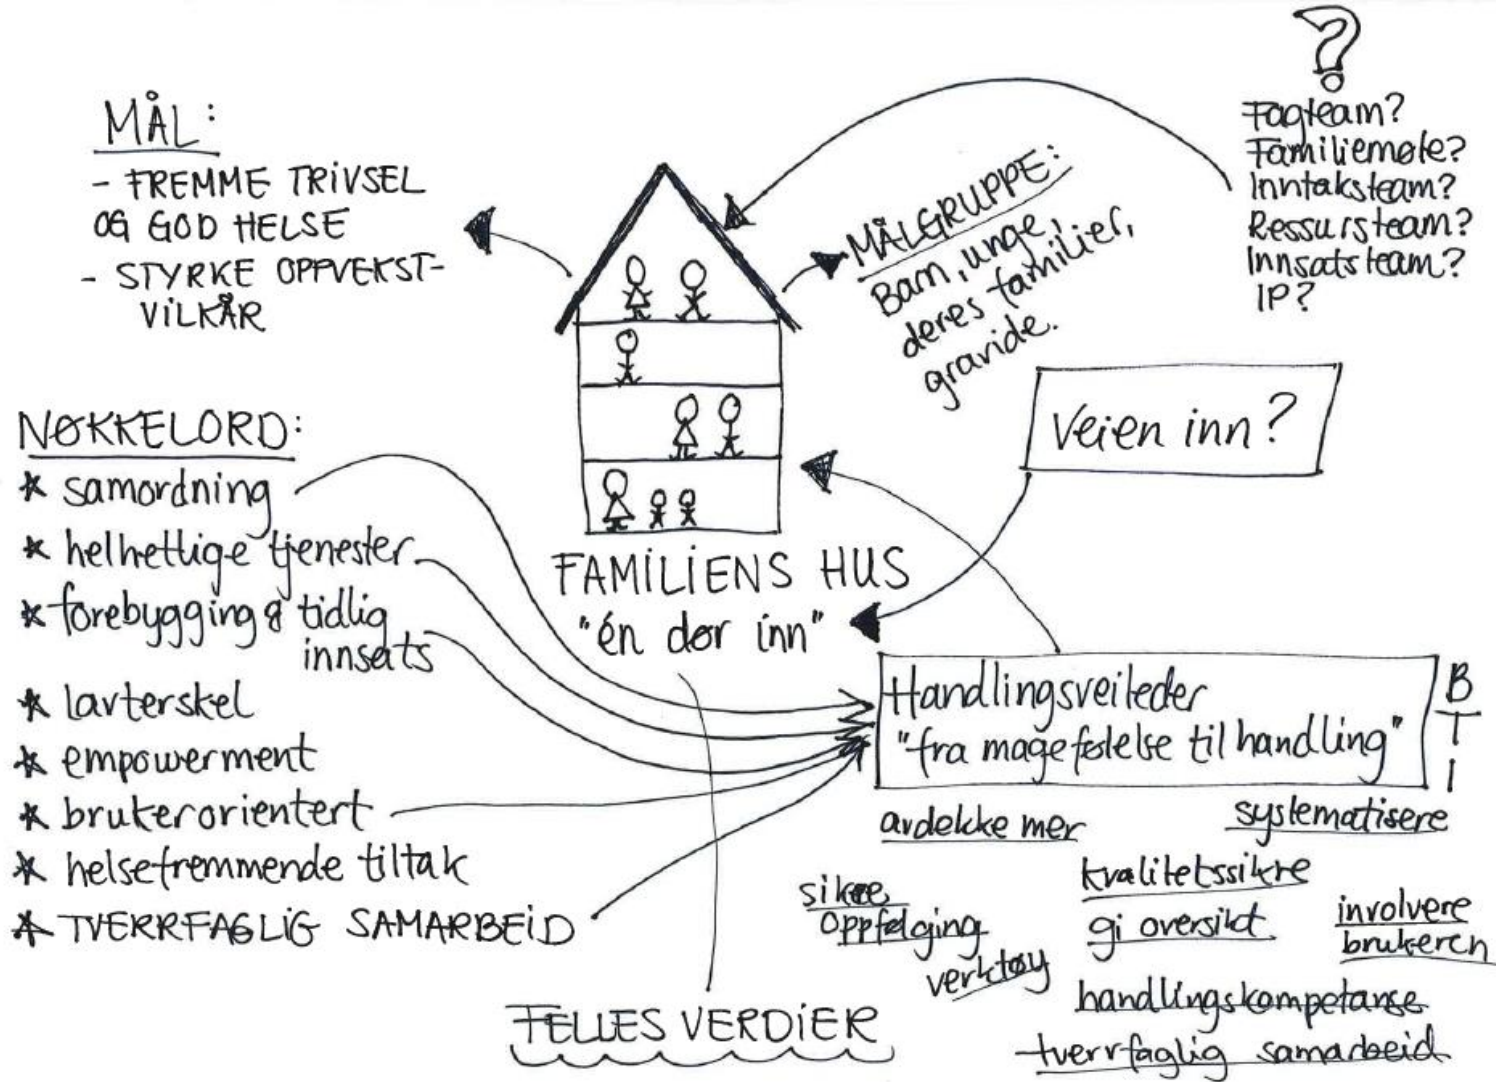 MÅL:
- FREMME TRIVSEL
OG GOD HELSE
- STYRKE OPPVEKST-
VILKÅR
?
Fagteam?
Familiemøte?
Inntaksteam?
Ressursteam?
Innsatsteam?
IP?
MÅLGRUPPE:
Barn, unge,
deres familier,
gravide.
Veien inn?
NØKKELORD:
* samordning
* helhetlige tjenester
* forebygging & tidlig
innsats
* lavterskel
* empowerment
* brukerorientert
* helsefremmende tiltak
* TVERRFAGLIG SAMARBEID
FAMILIENS HUS
"én dør inn"
Handlingsveileder
"fra magefølelse til handling"
B
T
I
avdekke mer
systematisere
sikre
oppfølging
verktøy
kvalitetssikre
gi oversikt
involvere
brukeren
handlingskompetanse
tverrfaglig samarbeid
FELLES VERDIER